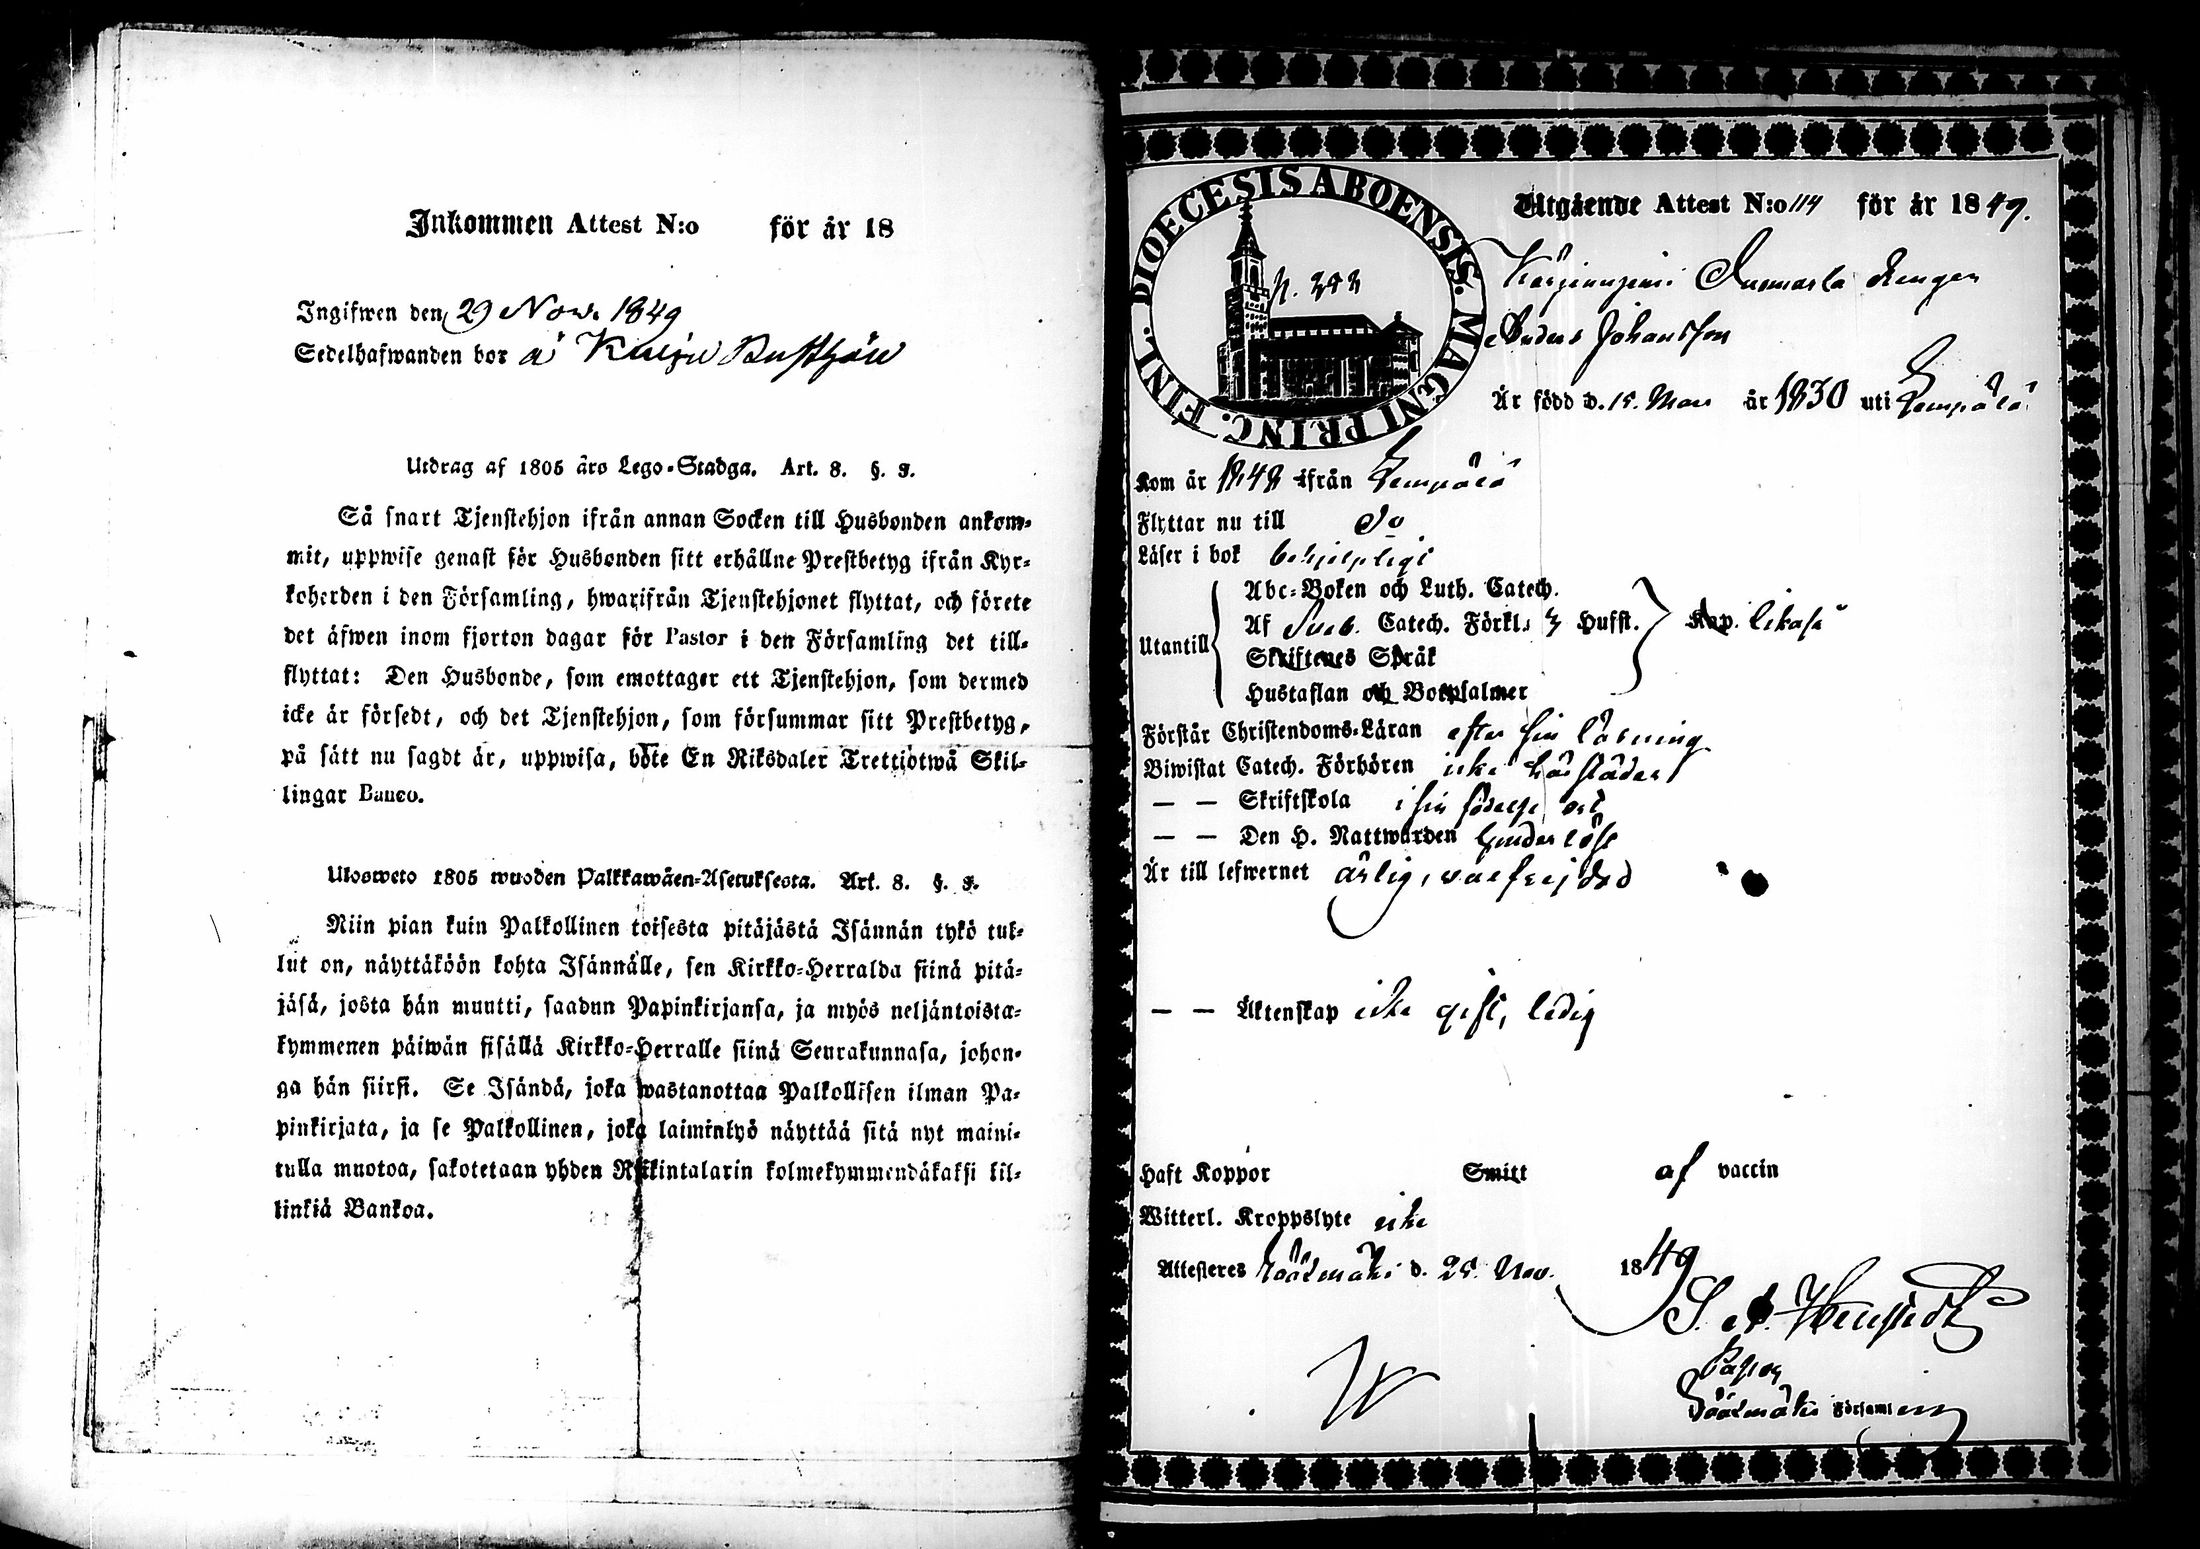 Inkommen Attest N:o för år 18
Ingifwen den 29 Nov. 1849
Sedelhafwanden bor å
Utdrag af 1805 års Lego-Stadga. Art. 8. §. 9.
Så snart Tjenstehjon ifrån annan Socken till Husbonden ankom-
mit, uppwise genast för Husbonden sitt erhållne Prestbetyg ifrån Kyr-
koherden i den Församling, hwarifrån Tjenstehjonet flyttat, och förete
det äfwen inom fjorton dagar för Pastor i den Församling det till-
flyttat: Den Husbonde, som emottager ett Tjenstehjon, som dermed
icke är försedt, och det Tjenstehjon, som försummar sitt Prestbetyg,
på sätt nu sagdt är, uppwisa, böte En Riksdaler Trettiotwå Skil-
lingar Banco.
Ulosweto 1805 wuoden Palkkawäen-Asetuksesta. Art. 8. §. 9.
Niin pian kuin Palkollinen toisesta pitäjästä Isännän tykö tul-
lut on, näyttäköön kohta Isännälle, sen Kirkko-Herralda siinä pitä-
jäsä, josta hän muutti, saadun Papinkirjansa, ja myös neljäntoista-
kymmenen päiwän sisällä Kirkko-Herralle siinä Seurakunnasa, johon-
ga hän siirsi. Se Isändä, joka wastanottaa Palkollisen ilman Pa-
pinkirjata, ja se Palkollinen, joka laiminlyö näyttää sitä nyt maini-
tulla muotoa, sakotetaan yhden Riikintalarin kolmekymmendäkaksi kil-
linkiä Bankoa.
DIOECESIS ABOENSIS. MAGNI PRINC. FINL.
Utgående Attest N:o 114 för år 1849.
Drengen
Anders Johansson
Är född d. 15. Mars år 1830 uti Lempälä
Kom år 1848 ifrån Lempälä
Flyttar nu till Do
Läser i bok behjelpligt
Utantill
Abc-Boken och Luth. Catech.
Af Sveb. Catech. Förkl. Hufst. Kap. likaså
Skriftenes Språk
Hustaflan och Botpsalmer
Förstår Christendoms-Läran efter sin läsning
Biwistat Catech. Förhören icke härstädes
— — Skriftskola i sin födelse ort
— — Den H. Nattwarden hinderlöst
Är till lefwernet ärlig, väl frejdad
— — Äktenskap icke gift, ledig
Haft Koppor Smitt af vaccin
Witterl. Kroppslyte icke
Attesteres Sääxmäki d. 25. Nov. 1849
Pastor
Sääxmäki Församling